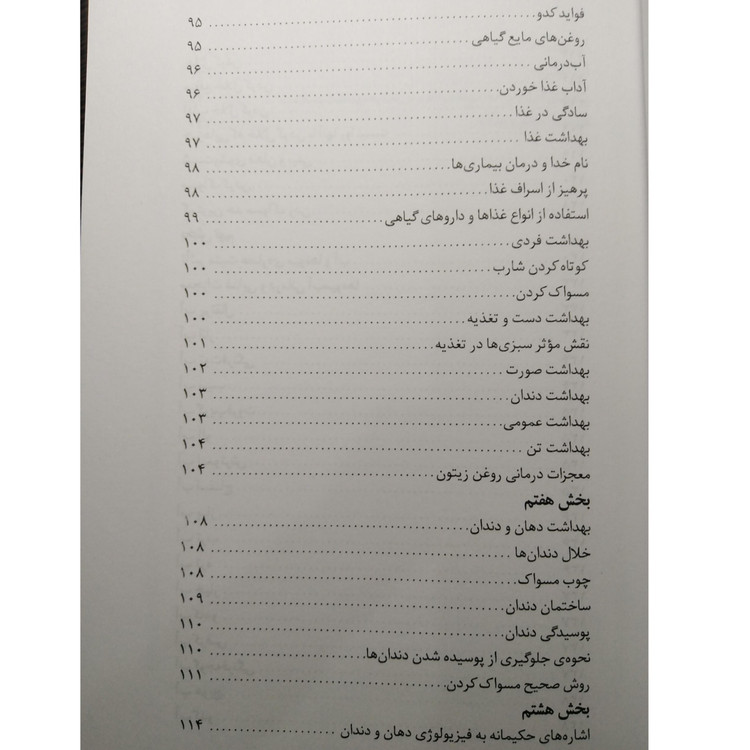 فواید کدو ........ ۹۵
روغن‌های مایع گیاهی ........ ۹۵
آب‌درمانی ........ ۹۶
آداب غذا خوردن ........ ۹۶
سادگی در غذا ........ ۹۷
بهداشت غذا ........ ۹۷
نام خدا و درمان بیماری‌ها ........ ۹۸
پرهیز از اسراف غذا ........ ۹۸
استفاده از انواع غذاها و داروهای گیاهی ........ ۹۹
بهداشت فردی ........ ۱۰۰
کوتاه کردن شارب ........ ۱۰۰
مسواک کردن ........ ۱۰۰
بهداشت دست و تغذیه ........ ۱۰۰
نقش مؤثر سبزی‌ها در تغذیه ........ ۱۰۱
بهداشت صورت ........ ۱۰۲
بهداشت دندان ........ ۱۰۳
بهداشت عمومی ........ ۱۰۳
بهداشت تن ........ ۱۰۴
معجزات درمانی روغن زیتون ........ ۱۰۴
بخش هفتم
بهداشت دهان و دندان ........ ۱۰۸
خلال دندان‌ها ........ ۱۰۸
چوب مسواک ........ ۱۰۸
ساختمان دندان ........ ۱۰۹
پوسیدگی دندان ........ ۱۱۰
نحوه‌ی جلوگیری از پوسیده شدن دندان‌ها ........ ۱۱۰
روش صحیح مسواک کردن ........ ۱۱۱
بخش هشتم
اشاره‌های حکیمانه به فیزیولوژی دهان و دندان ........ ۱۱۴